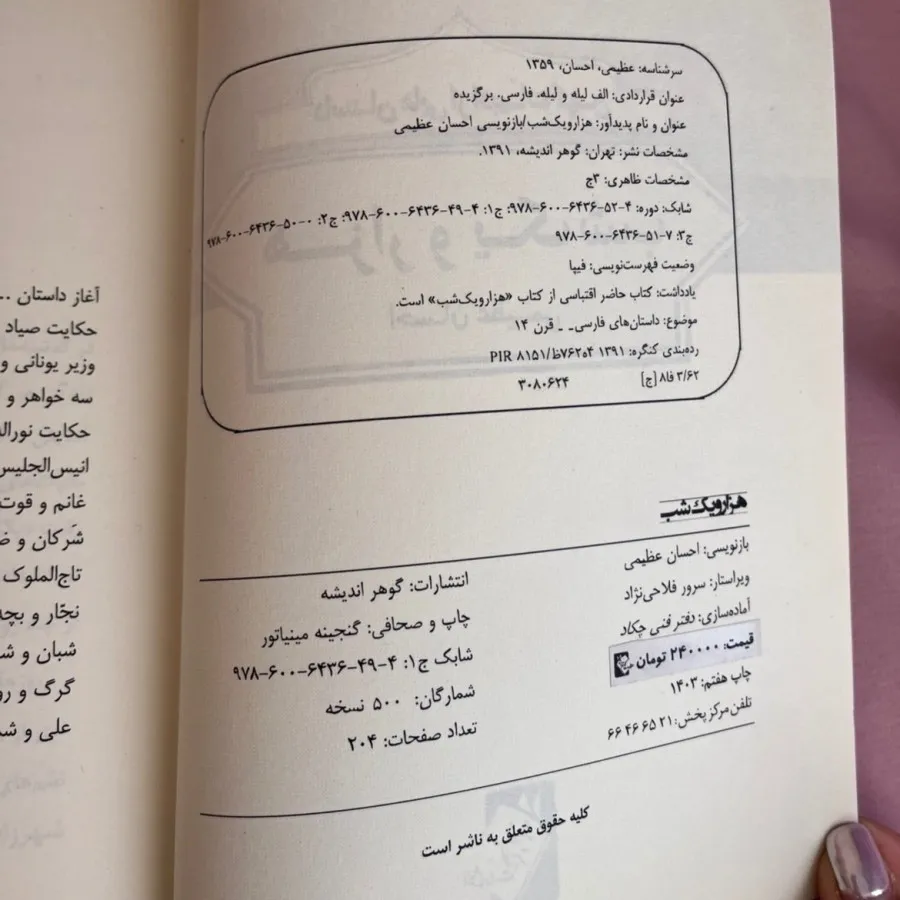 سرشناسه: عظیمی، احسان، ۱۳۵۹
عنوان قراردادی: الف لیله و لیله. فارسی. برگزیده
عنوان و نام پدیدآور: هزارویک‌شب/بازنویسی احسان عظیمی
مشخصات نشر: تهران: گوهر اندیشه، ۱۳۹۱.
مشخصات ظاهری: ۳ج
شابک: دوره: ۴-۵۲-۶۴۳۶-۶۰۰-۹۷۸؛ ج۱: ۴-۴۹-۶۴۳۶-۶۰۰-۹۷۸؛ ج۲: ۰-۵۰-۶۴۳۶-۶۰۰-۹۷۸
ج۳: ۷-۵۱-۶۴۳۶-۶۰۰-۹۷۸
وضعیت فهرست‌نویسی: فیپا
یادداشت: کتاب حاضر اقتباسی از کتاب «هزارویک‌شب» است.
موضوع: داستان‌های فارسی- - قرن ۱۴
رده‌بندی کنگره: ۱۳۹۱ ۴ه۷۶۲ظ/PIR ۸۱۵۱
۳/۶۲ فا۸ [ج] ۳۰۸۰۶۲۴
هزارویک‌شب
بازنویسی: احسان عظیمی
ویراستار: سرور فلاحی‌نژاد
آماده‌سازی: دفتر فنی چکاد
قیمت: ۲۴۰۰۰۰ تومان
چاپ هفتم: ۱۴۰۳
تلفن مرکز پخش: ۲۱ ۶۵ ۴۶ ۶۶
انتشارات: گوهر اندیشه
چاپ و صحافی: گنجینه مینیاتور
شابک ج۱: ۴-۴۹-۶۴۳۶-۶۰۰-۹۷۸
شمارگان: ۵۰۰ نسخه
تعداد صفحات: ۲۰۴
کلیه حقوق متعلق به ناشر است
آغاز داستان ..
حکایت صیاد
وزیر یونانی و
سه خواهر و
حکایت نورال
انیس‌الجلیس
غانم و قوت
شَرکان و ض
تاج‌الملوک
نجّار و بچه
شبان و ش
گرگ و رو
علی و شم